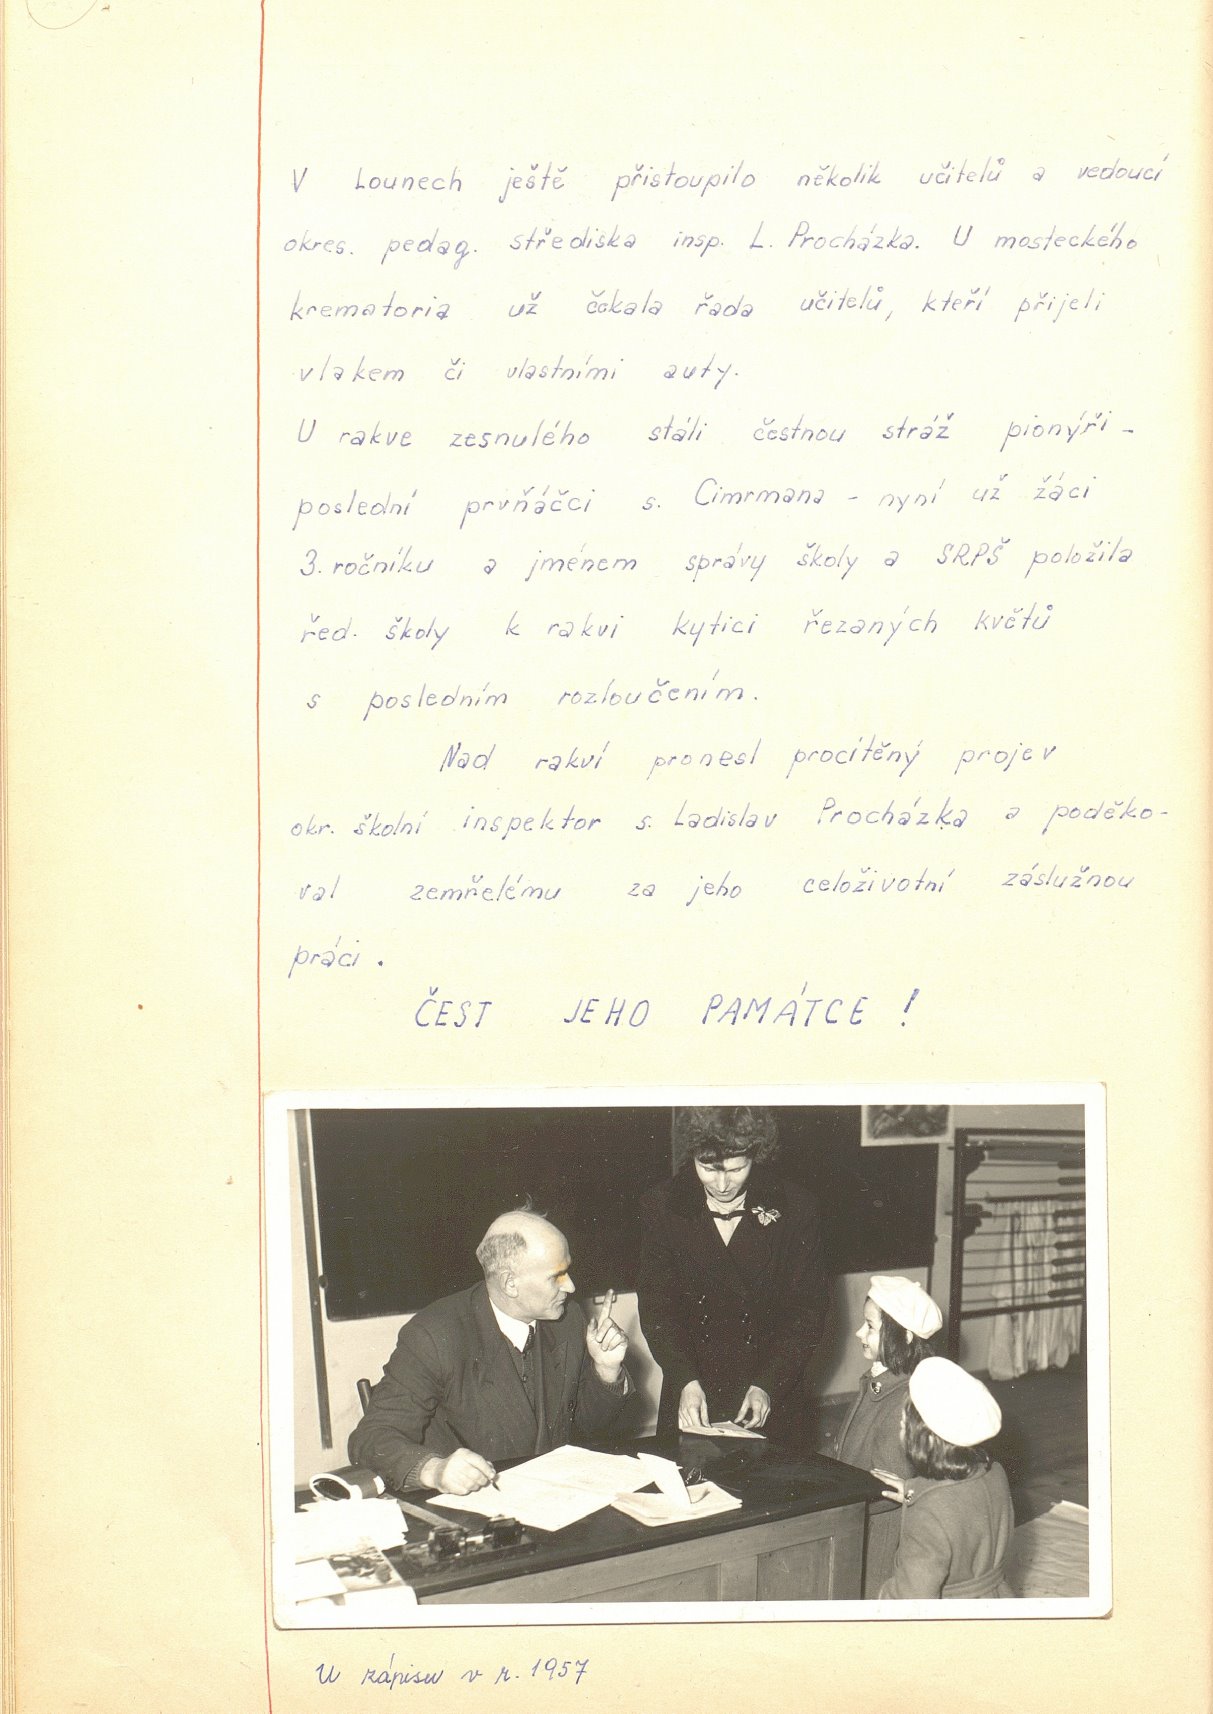 V Lounech ještě přistoupilo několik učitelů a vedoucí
okres. pedag. střediska insp. L. Procházka. U mosteckého
krematoria už čekala řada učitelů, kteří přijeli
vlakem či vlastními auty.
U rakve zesnulého stáli čestnou stráž pionýři -
poslední prvňáčci s. Cimrmana - nyní už žáci
3. ročníku a jménem správy školy a SRPŠ položila
řed. školy k rakvi kytici řezaných květů
s posledním rozloučením.
Nad rakví pronesl procítěný projev
okr. školní inspektor s. Ladislav Procházka a poděko-
val zemřelému za jeho celoživotní záslužnou
práci.
ČEST JEHO PAMÁTCE !
U zápisu v r. 1957